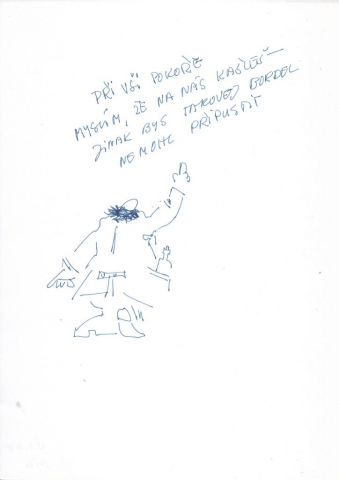 PŘI VŠÍ POKOŘE
MYSLÍM, ŽE NA NÁS KAŠLEŠ –
JINAK BYS TAKOVEJ BORDEL
NEMOHL PŘIPUSTIT